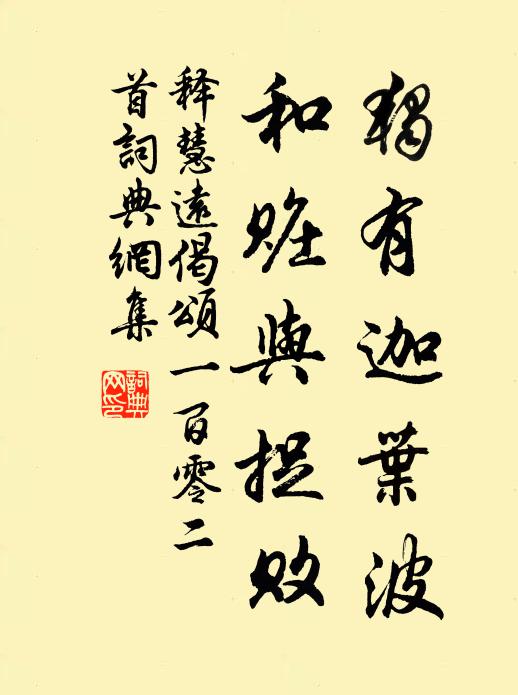 獨有迦葉波
和賍與捉敗
釋慧遠偈頌一百零二
首詞典網集
詞典網印